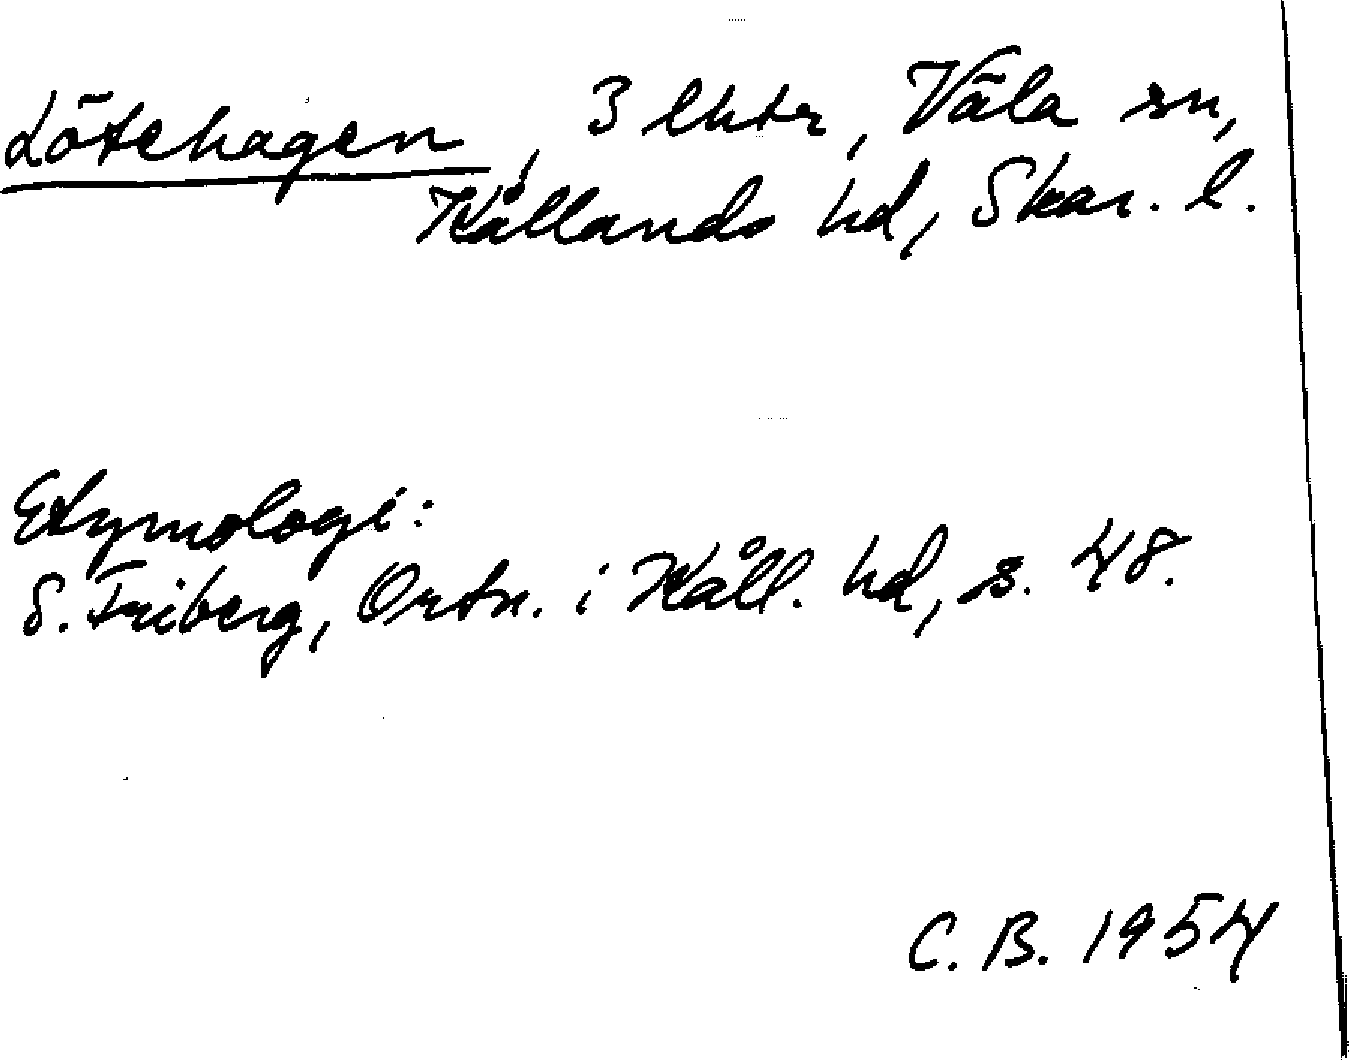 Lötehagen, 3 lhtr, Väla sn,
Kållands hd, Skar. l.
Etymologi:
S. Friberg, Ortn. i Kåll. hd, s. 48.
C. B. 1954